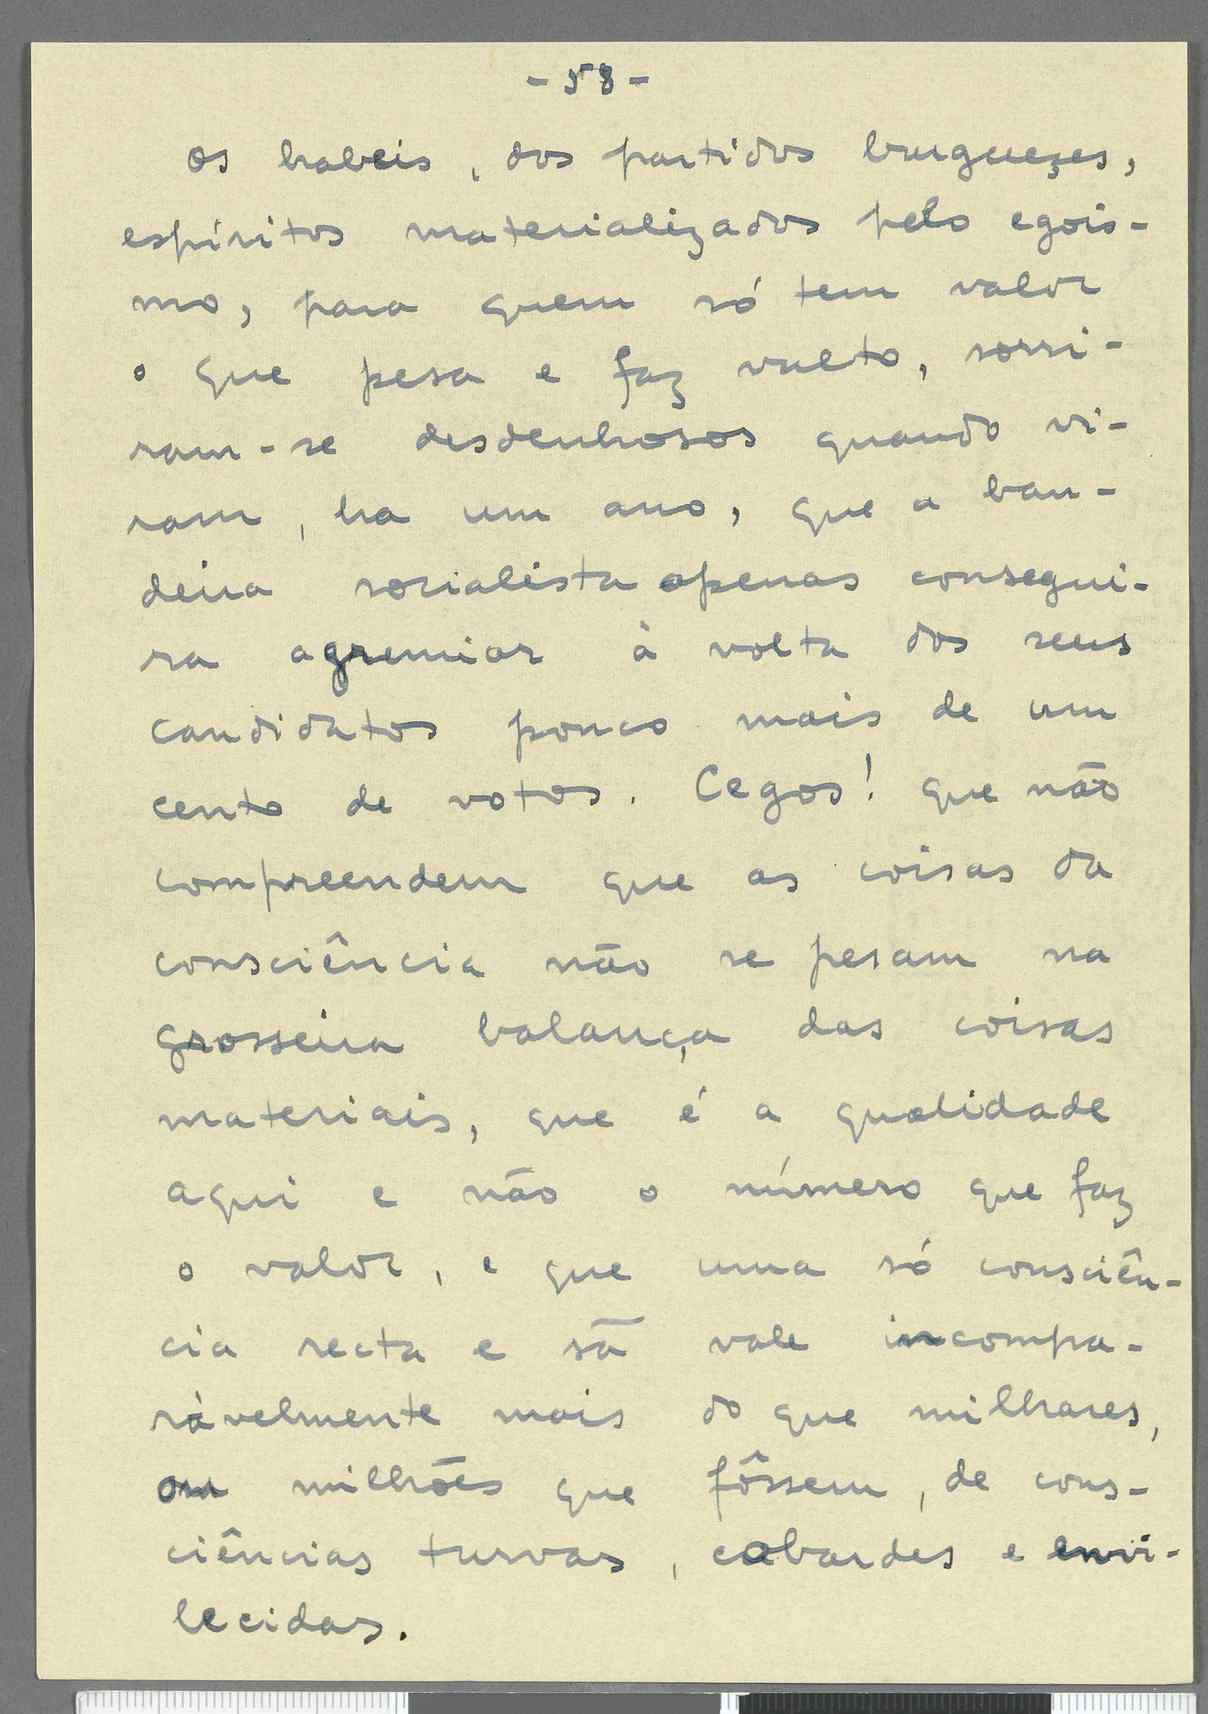 - 58 -
os habeis, dos partidos burguezes,
espíritos materializados pelo egois-
mo, para quem só tem valor
o que pesa e faz vulto, sorri-
ram-se desdenhosos quando vi-
ram, ha um ano, que a ban-
deira socialista apenas consegui-
ra agremiar à volta dos seus
candidatos pouco mais de um
cento de votos. Cegos! que não
compreendem que as coisas da
consciência não se pesam na
grosseira balança das coisas
materiais, que é a qualidade
aqui e não o número que faz
o valor, e que uma só consciên-
cia recta e sã vale incompa-
ràvelmente mais do que milhares,
ou milhões que fôssem, de cons-
ciências turvas, cobardes e envi-
lecidas.